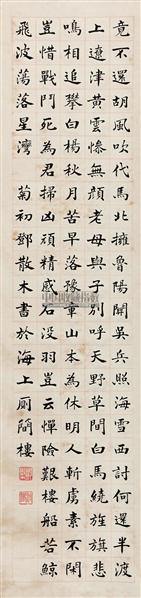 竟不還胡風吹代馬北擁魯陽關吳兵照海雪西討何還半渡
上遼津黃雲慘無顏老母與子別呼天野草間白馬繞旌旗悲
鳴相追攀白楊秋月苦早落豫章山本為休明人斬虜素不閑
豈惜戰鬥死為君掃凶頑精感石沒羽豈云憚險艱樓船若鯨
飛波蕩落星灣 菊初鄧散木書於海上厠簡樓